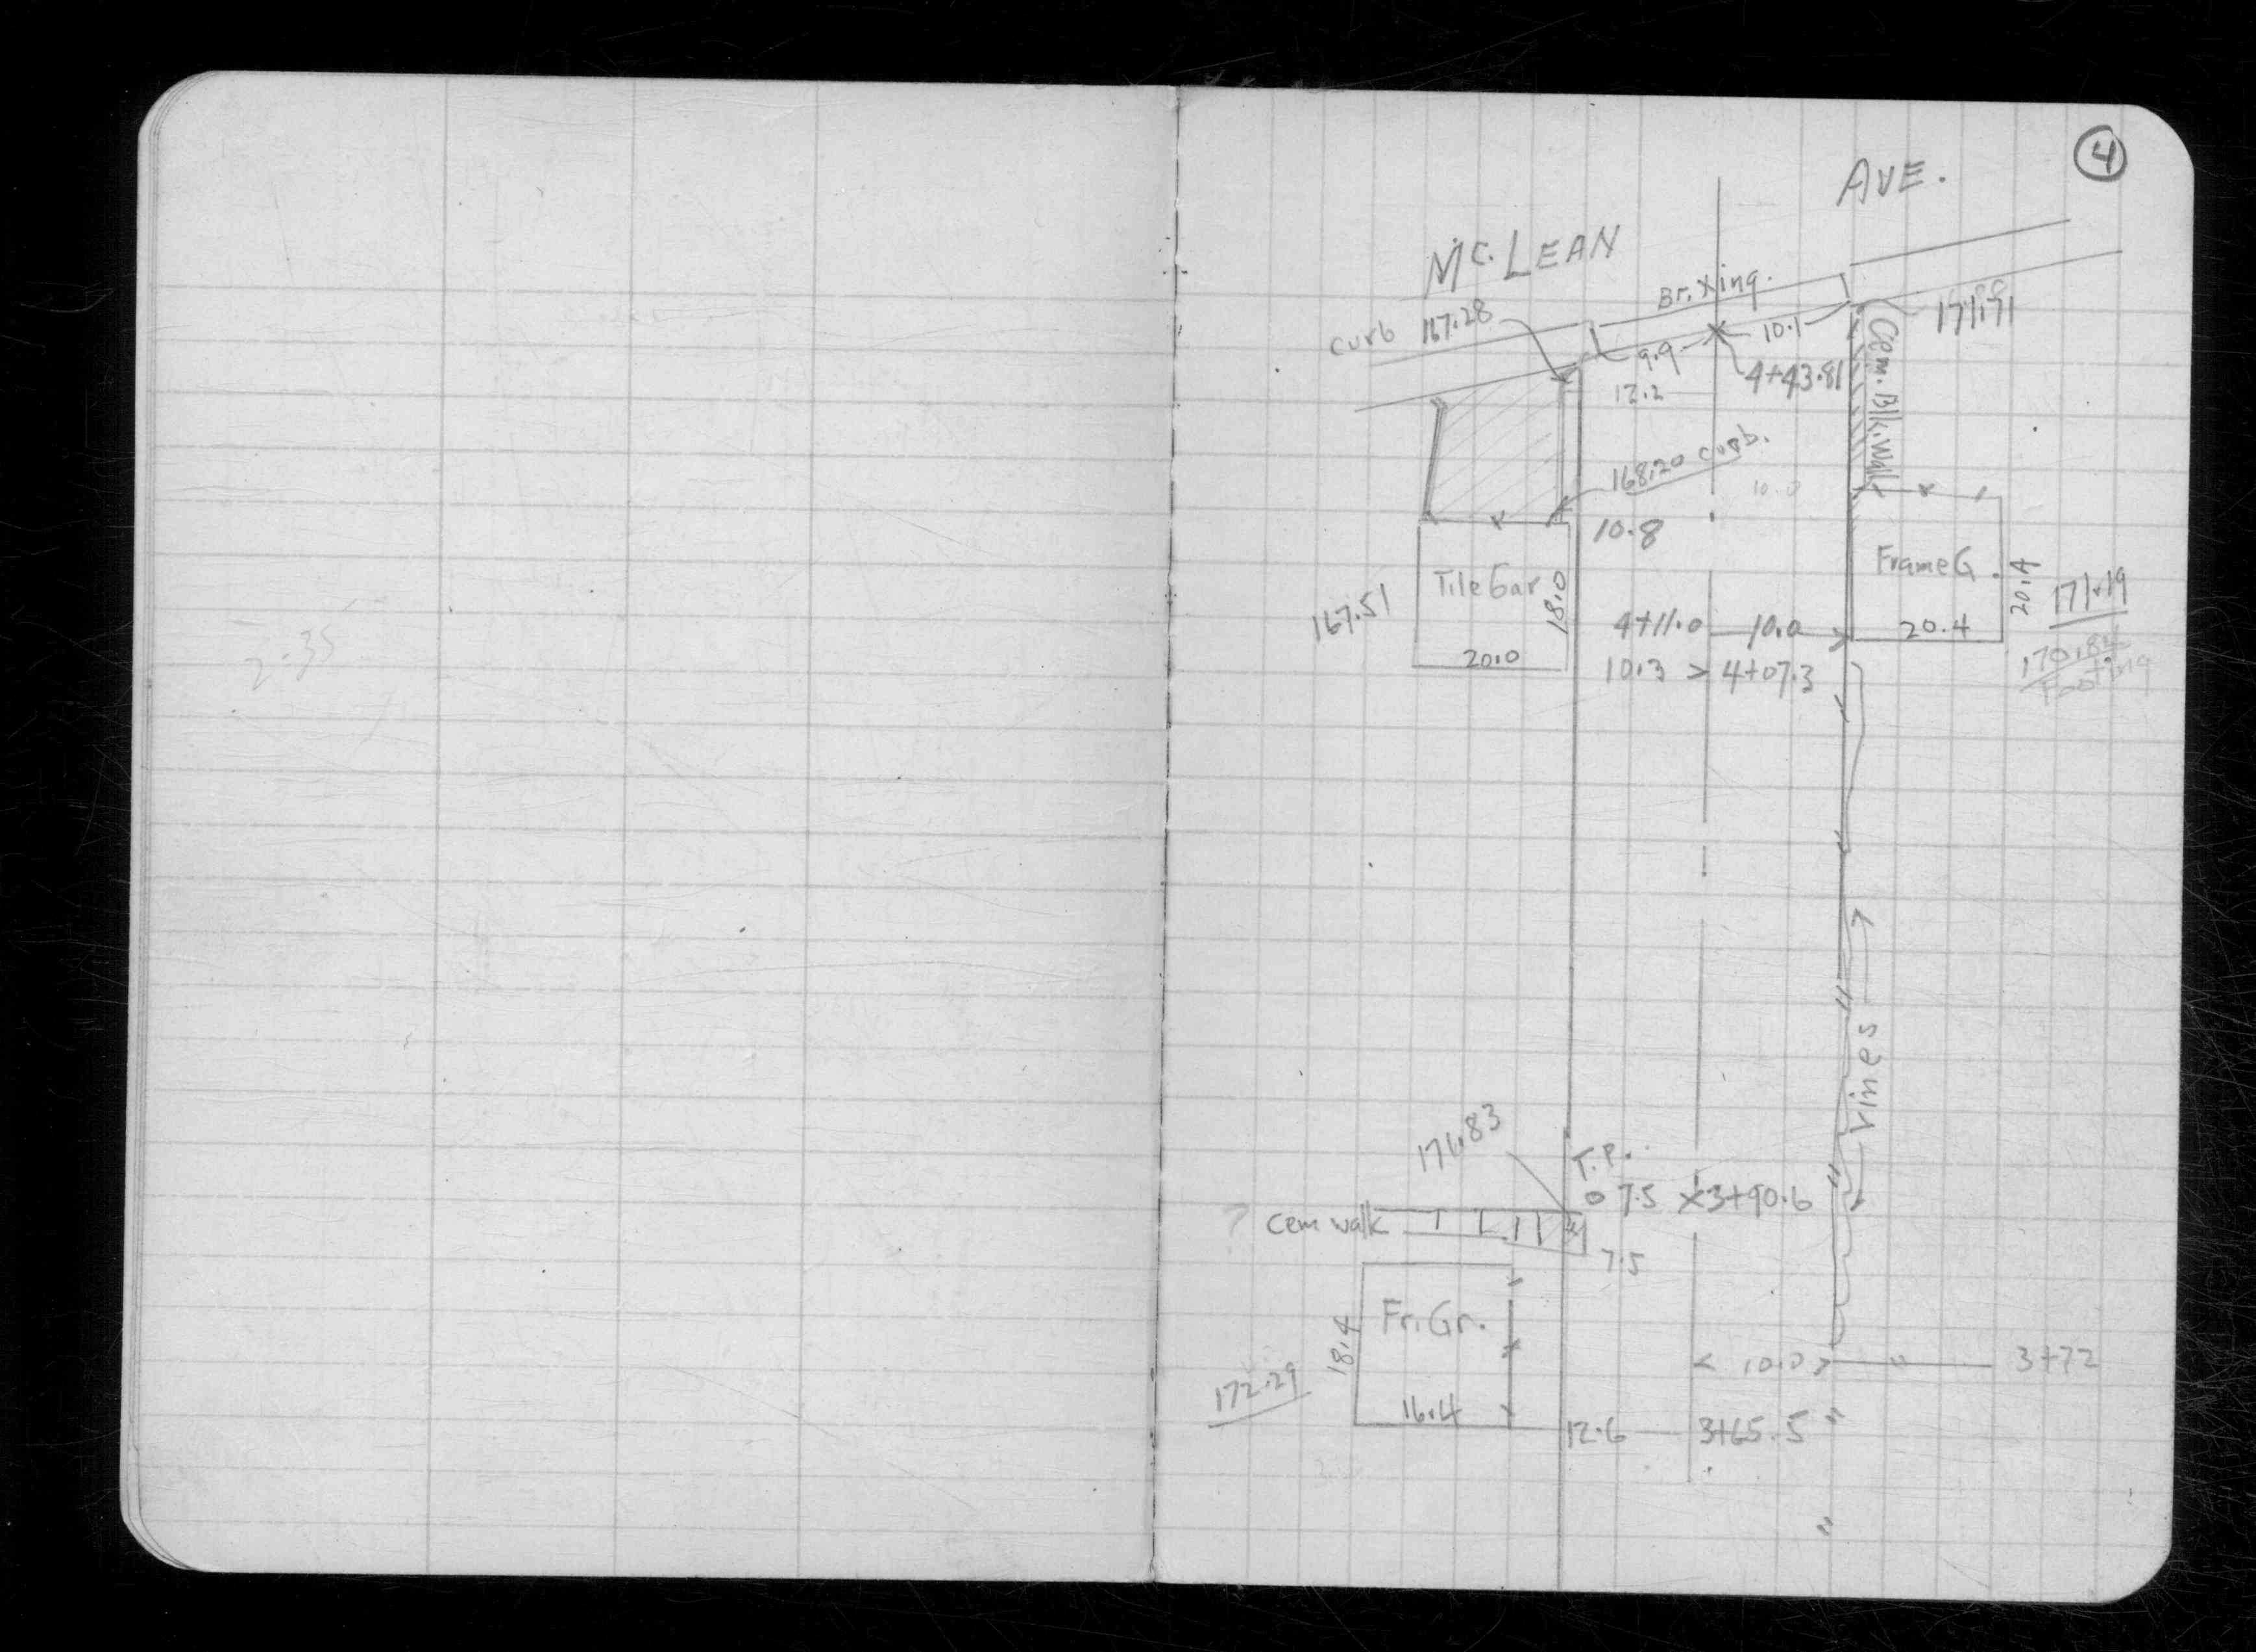 4
AVE.
Mc. LEAN
Br. Xing.
curb 167.28
10.1
171.71
9.9
4+43.81
12.2
Cem. Blk. Walk
168.20 curb.
10.0
10.8
Tile Gar
18.0
20.0
167.51
Frame G.
20.4
20.4
171.19
170.84
Footing
4+11.0 10.0
10.3 > 4+07.3
2.35
Vines
171.83
T.P.
0 7.5 X 3+90.6
? Cem walk
7.5
Fr. Gr.
18.4
16.4
172.29
< 10.0 > " 3+72
12.6 3+65.5 "
"